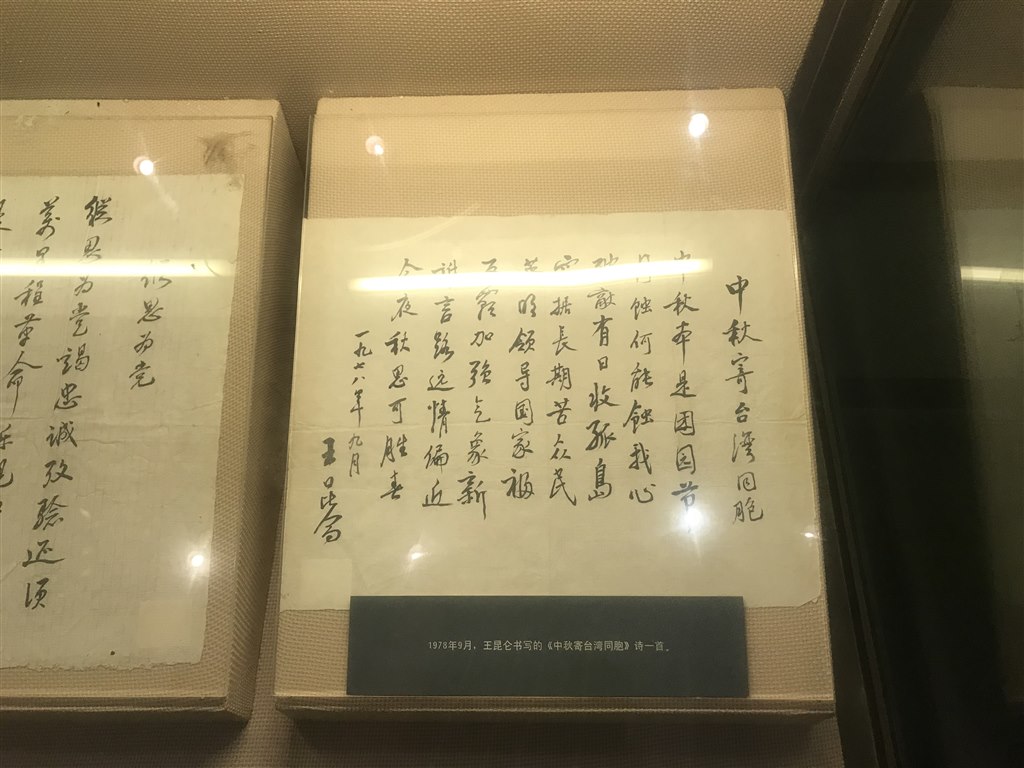 中秋寄台湾同胞
中秋本是团圆节
月蚀何能蚀我心
敌有日收孤岛
据长期苦众民
英明领导国家福
百倍加强气象新
谁言路远情偏近
今夜秋思可胜春
一九七八年九月
王昆仑
思为党
纵思为党竭忠诚致验还须
万里程革命
1978年9月，王昆仑书写的《中秋寄台湾同胞》诗一首。